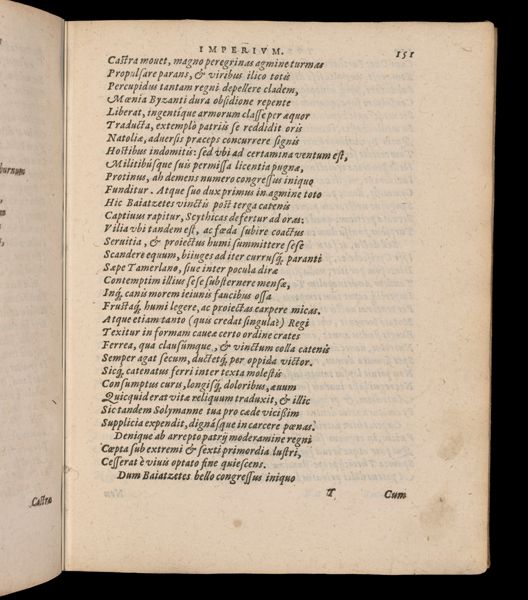 IMPERIVM. 151
Castra mouet, magno peregrinas agmine turmas
Propulsare parans, & viribus ilico totis
Percupidus tantam regni depellere cladem,
Mœnia Byzanti dura obsidione repente
Liberat, ingentique armorum classe per æquor
Traducta, extemplò patriis se reddidit oris
Natoliæ, aduersis præceps concurrere signis
Hostibus indomitis: sed vbi ad certamina ventum est,
Militibúsque suis permissa licentia pugnæ,
Protinus, ab demens numero congressus iniquo
Funditur. Atque suo dux primus in agmine toto
Hic Baiatzetes vinctis post terga catenis
Captiuus rapitur, Scythicas defertur ad oras:
Vilia vbi tandem est, ac fœda subire coactus
Seruitia, & proiectus humi summittere sese
Scandere equum, biiuges ad iter currusq́; paranti
Sæpe Tamerlano, siue inter pocula diræ
Contemptim illius sese substernere mensæ,
Inq́; canis morem ieiunis faucibus ossa
Frustaq́; humi legere, ac proiectas carpere micas.
Atque etiam tanto (quis credat singula?) Regi
Texitur in formam caueæ certo ordine crates
Ferrea, qua clausúmque, & vinctum colla catenis
Semper agat secum, ductetq́; per oppida victor.
Sicq́; catenatus ferri inter texta molestis
Consumptus curis, longisq́; doloribus, æuum
Quicquid erat vitæ reliquum traduxit, & illic
Sic tandem Solymanne tua pro cæde vicißim
Supplicia expendit, dignásque in carcere pœnas.
Denique ab arrepto patrij moderamine regni
Cœpta sub extremi & sexti primordia lustri,
Cesserat è viuis optato fine quiescens.
Dum Baiatzetes bello congressus iniquo
T Cum
burnum
Castra